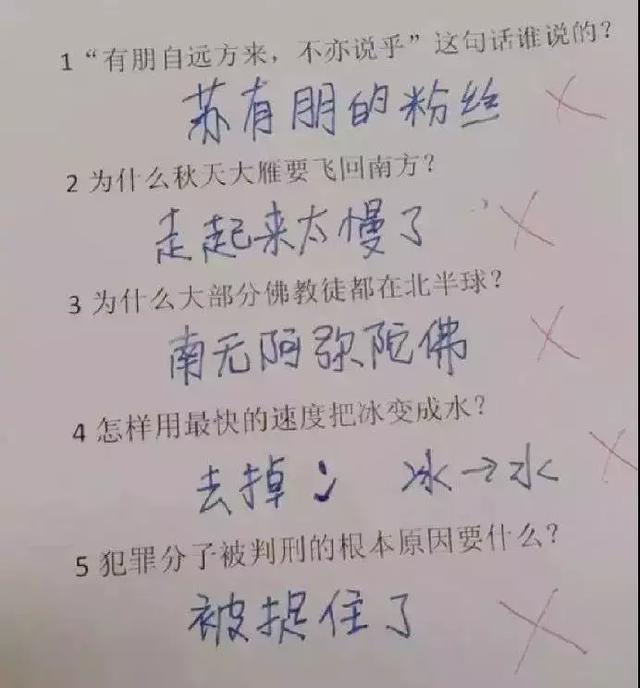 1 “有朋自远方来，不亦说乎”这句话谁说的？
苏有朋的粉丝
2 为什么秋天大雁要飞回南方？
走起来太慢了
3 为什么大部分佛教徒都在北半球？
南无阿弥陀佛
4 怎样用最快的速度把冰变成水？
去掉冫 冰→水
5 犯罪分子被判刑的根本原因要什么？
被捉住了